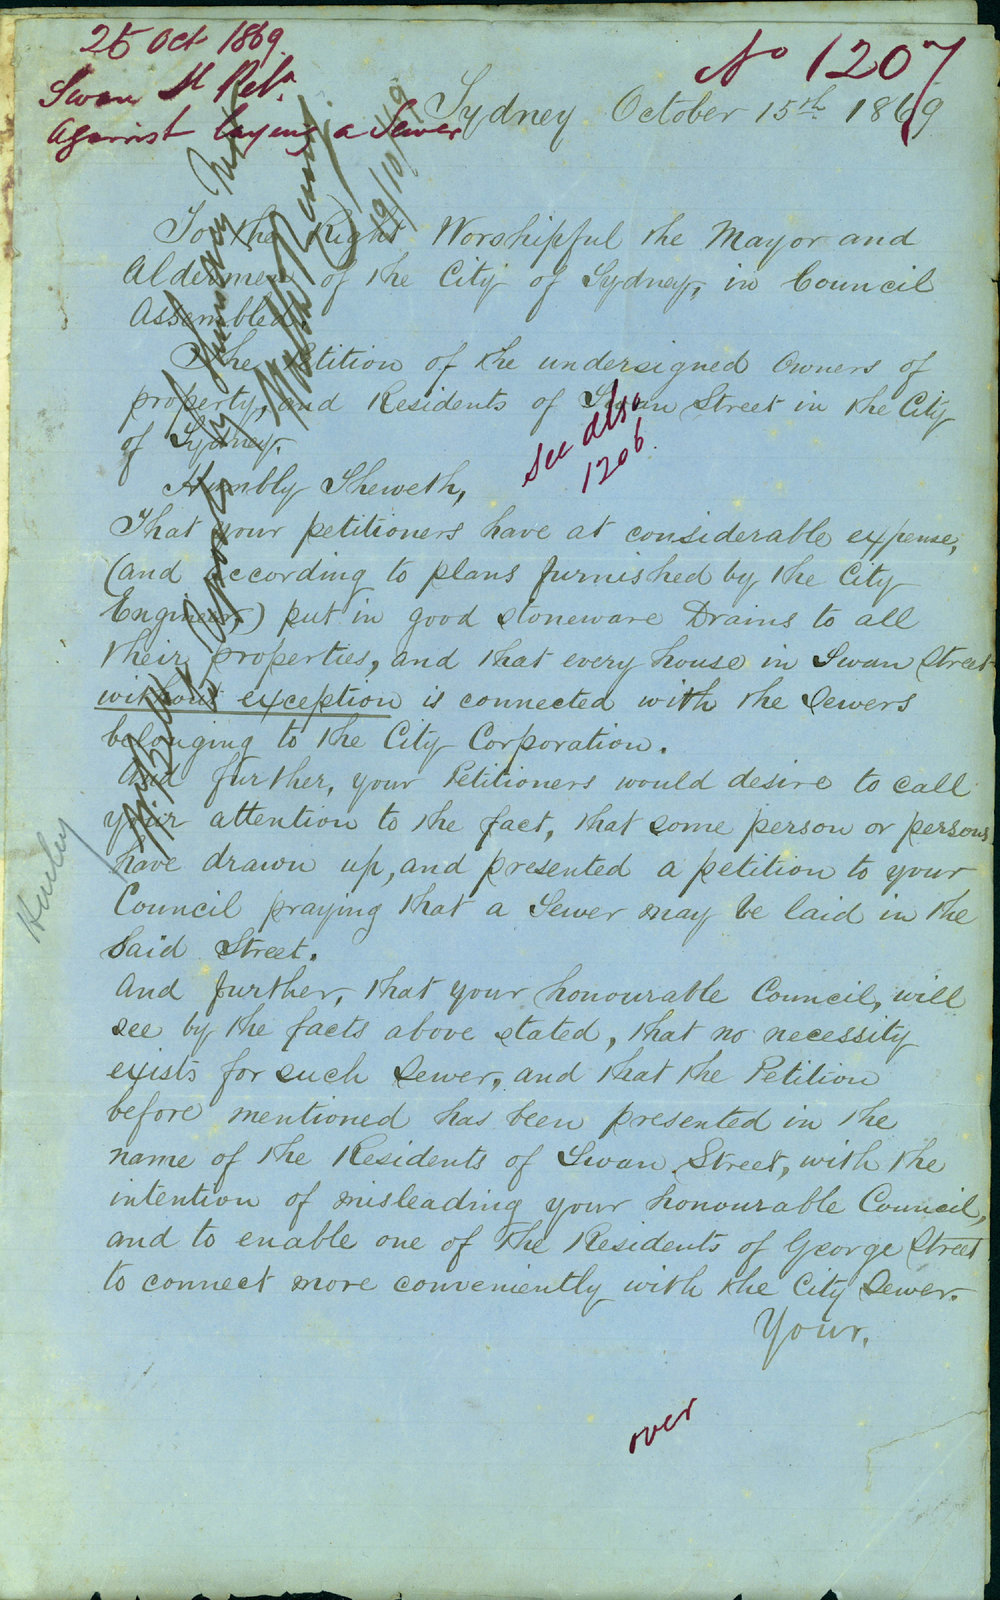 25 Oct 1869
No 1207
Swan St Petn
against laying a Sewer
Sydney October 15th 1869
19/10/69
To the Right Worshipful the Mayor and
Aldermen of the City of Sydney, in Council
Assembled.
The Petition of the undersigned Owners of
property, and Residents of Swan Street in the City
of Sydney.
See also
1206
Humbly Sheweth,
That your petitioners have at considerable expense,
(and according to plans furnished by the City
Engineer) put in good stoneware Drains to all
their properties, and that every house in Swan Street
without exception is connected with the Sewers
belonging to the City Corporation.
And further, your Petitioners would desire to call
your attention to the fact, that some person or persons
have drawn up, and presented a petition to your
Council praying that a Sewer may be laid in the
said Street.
And further, that your honourable Council, will
see by the facts above stated, that no necessity
exists for such Sewer, and that the Petition
before mentioned has been presented in the
name of the Residents of Swan Street, with the
intention of misleading your honourable Council,
and to enable one of the Residents of George Street
to connect more conveniently with the City Sewer.
Your.
over